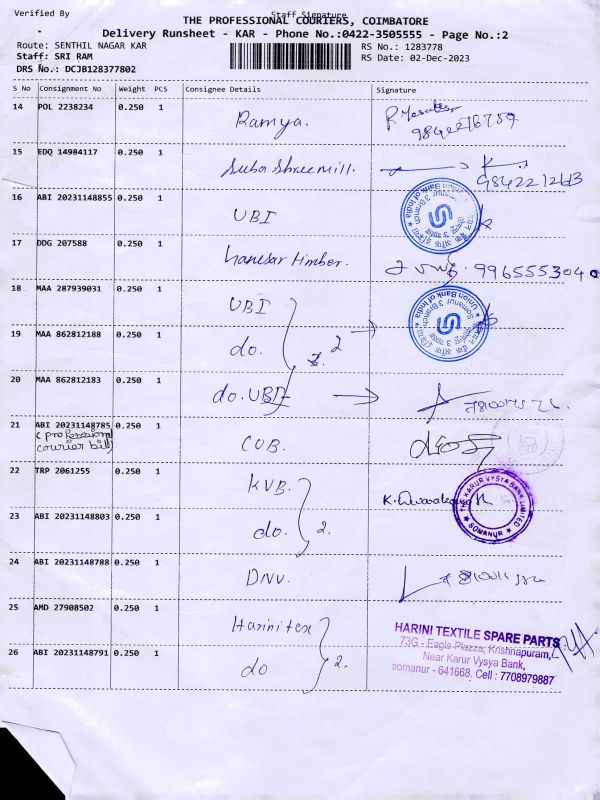 Verified By
Staff Signature
THE PROFESSIONAL COURIERS, COIMBATORE
Delivery Runsheet - KAR - Phone No.:0422-3505555 - Page No.:2
Route: SENTHIL NAGAR KAR
RS No.: 1283778
Staff: SRI RAM
RS Date: 02-Dec-2023
DRS No.: DCJB128377802
S No Consignment No Weight PCS Consignee Details Signature
14 POL 2238234 0.250 1 Ramya.
15 EDQ 14984117 0.250 1 Suba Shree mill.
16 ABI 20231148855 0.250 1 UBI
Union Bank of India
Somanur 3 Branch
17 DDG 207588 0.250 1 timber. 9965553040
18 MAA 287939031 0.250 1 UBI
Union Bank of India
Somanur 3 Branch
19 MAA 862812188 0.250 1 do. 2
20 MAA 862812183 0.250 1 do. UBI
21 ABI 20231148785 0.250 1 CUB.
(professional
courier bill)
22 TRP 2061255 0.250 1 KVB.
THE KARUR VYSYA BANK LIMITED
SOMANUR
23 ABI 20231148803 0.250 1 do. 2.
24 ABI 20231148788 0.250 1 DNV.
25 AMD 27908502 0.250 1 Harini tex
HARINI TEXTILE SPARE PARTS
73G - Eagle Plazza, Krishnapuram,
Near Karur Vysya Bank,
somanur - 641668. Cell : 7708979887
26 ABI 20231148791 0.250 1 do 2.